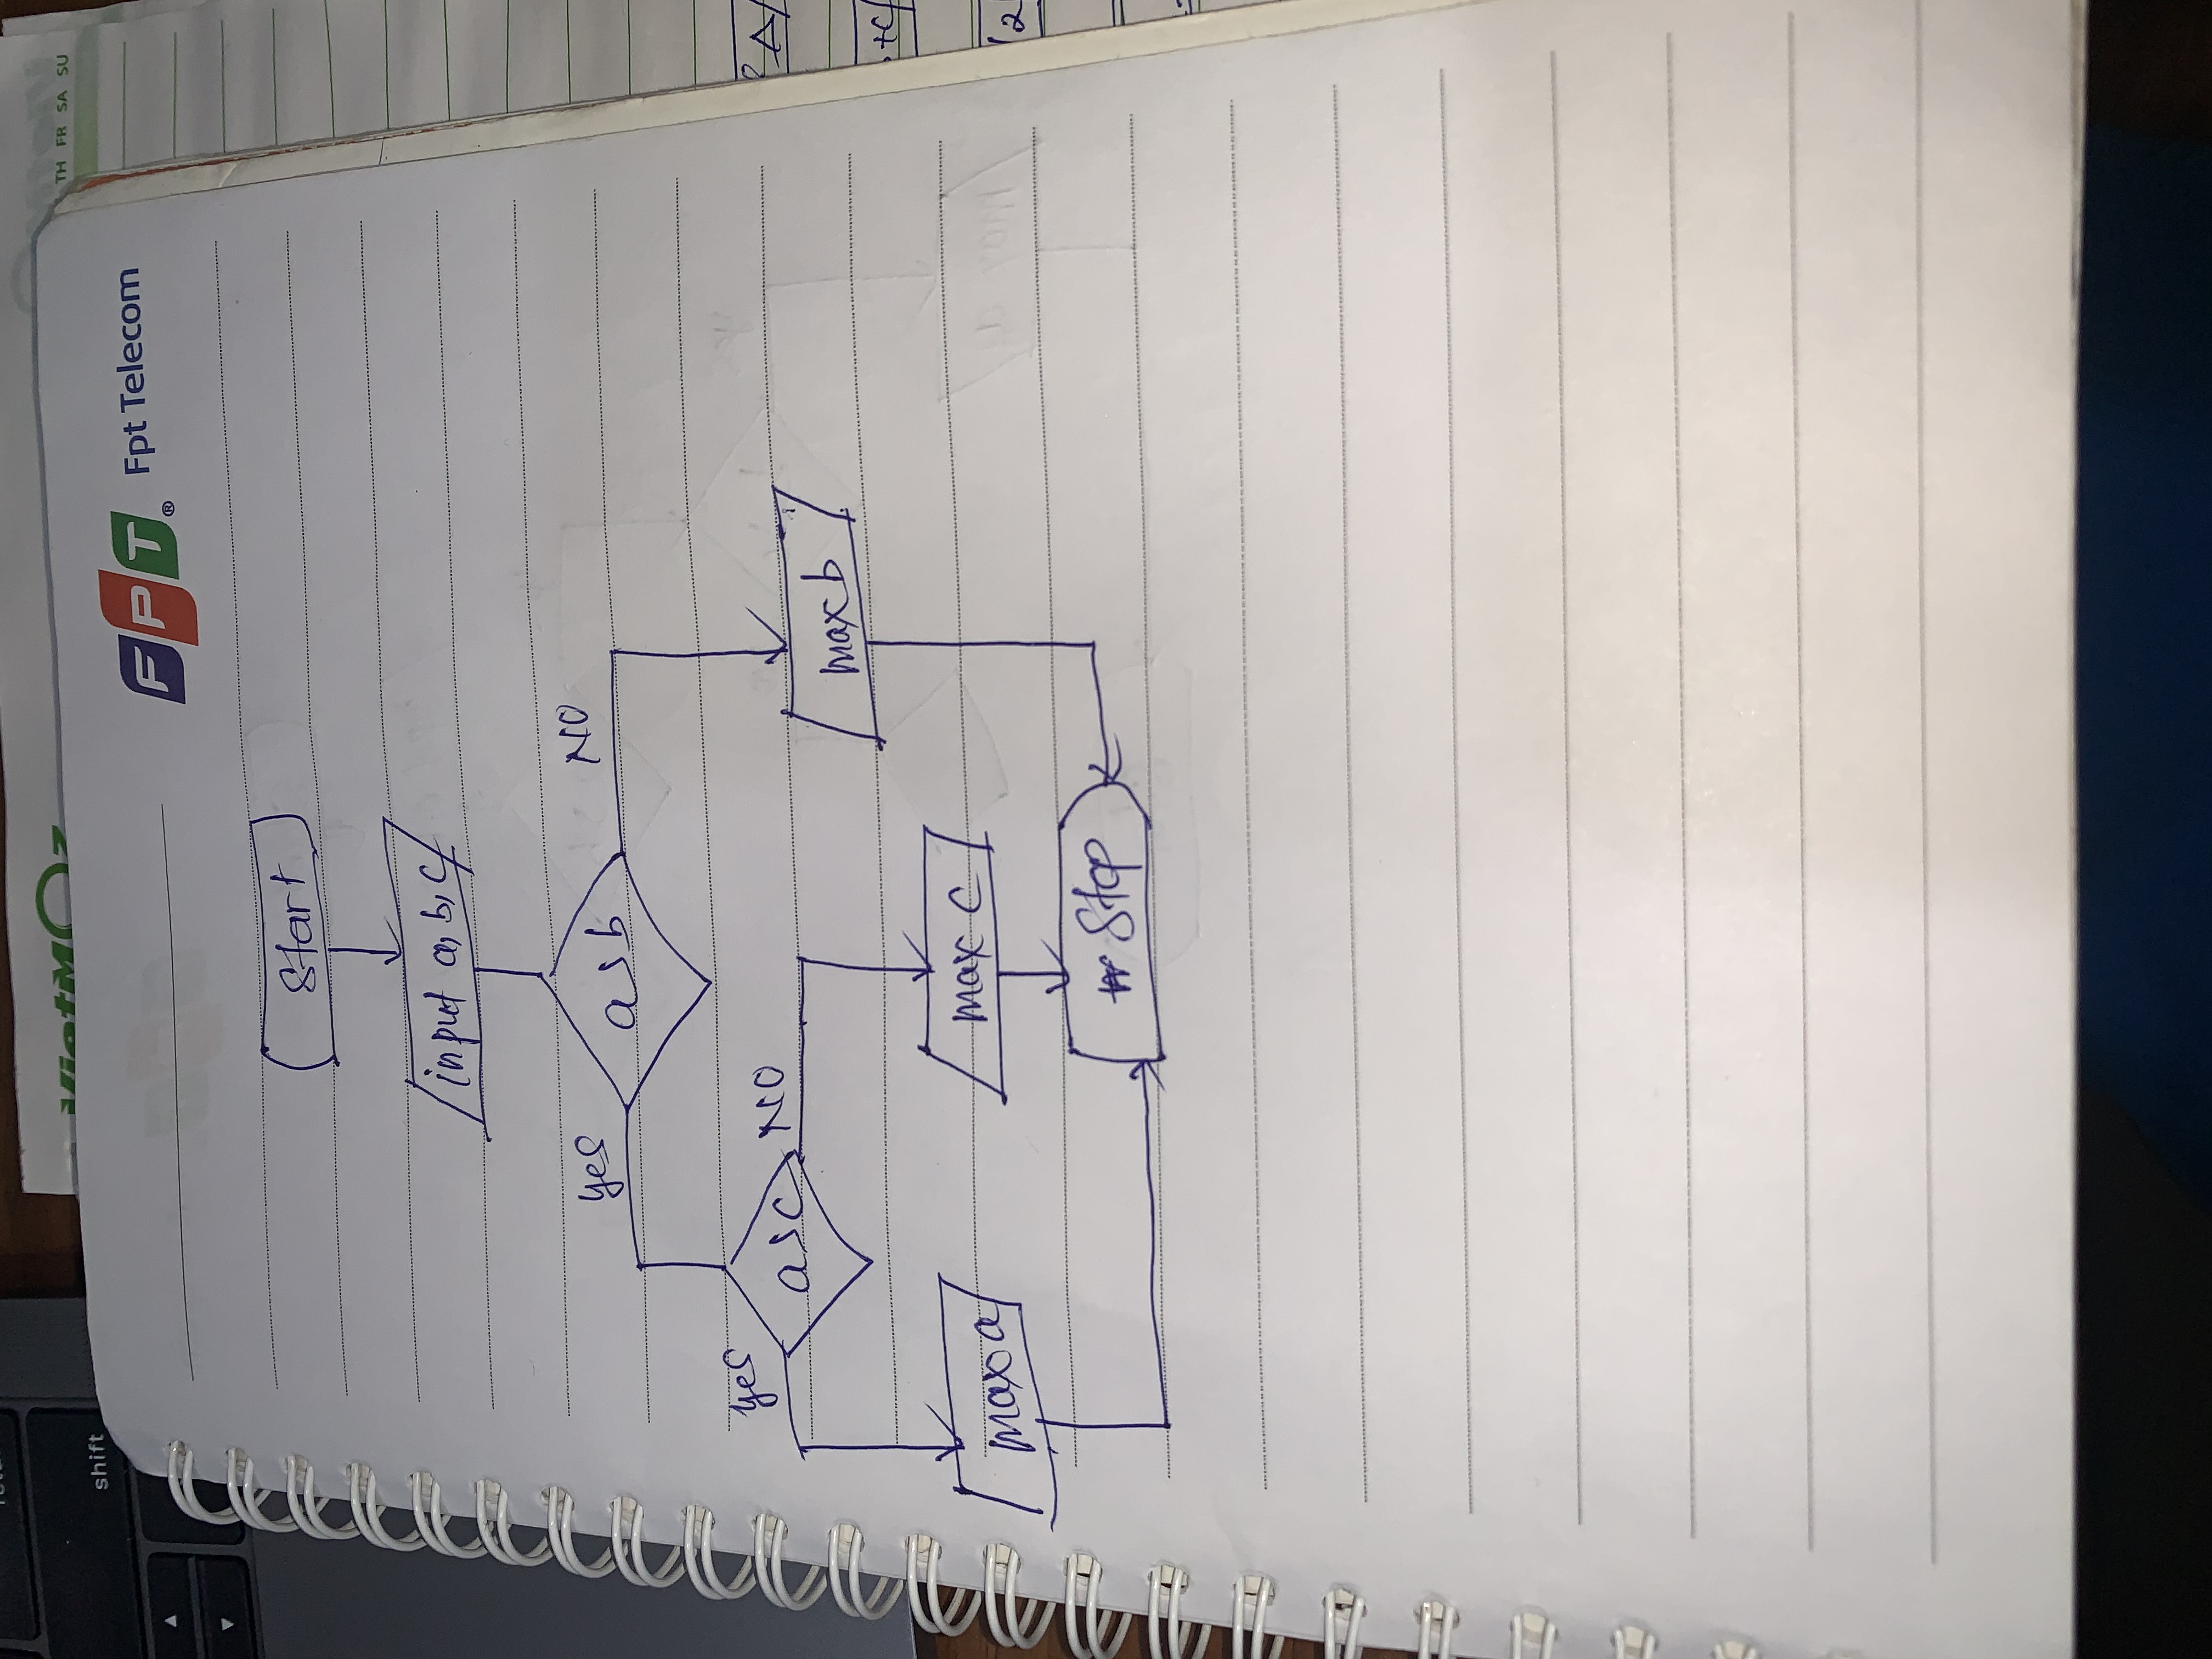 return
shift
VietMOz
TH FR SA SU
FPT® Fpt Telecom
Start
input a, b, c
yes
a > b
NO
yes
a > c
NO
max b
max a
max c
Stop
+c
/2